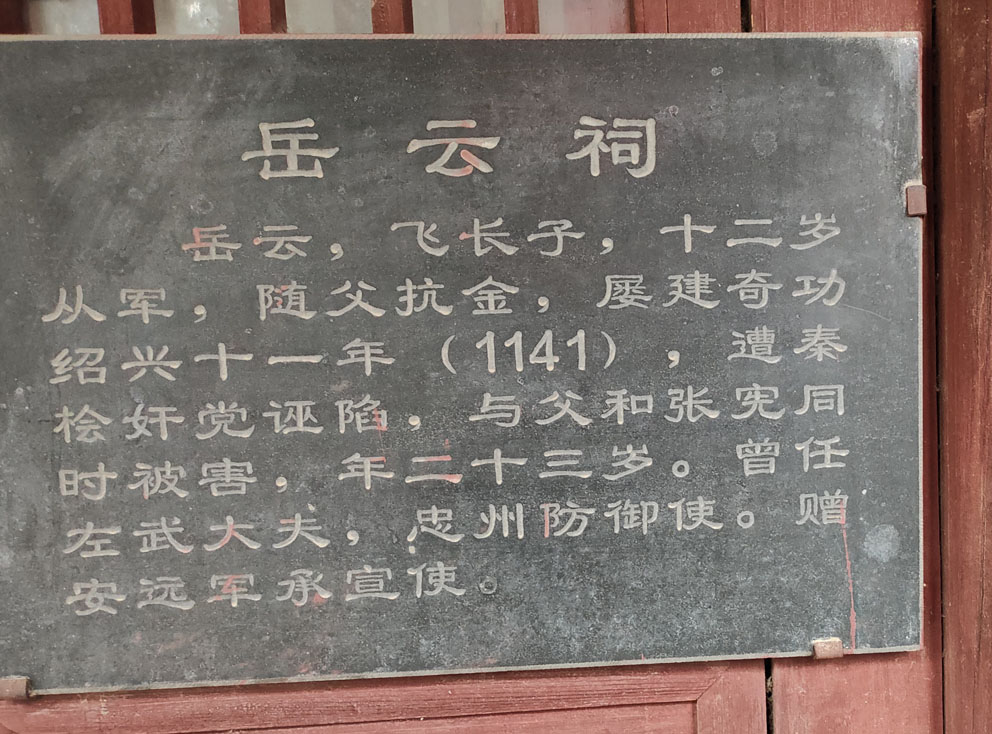 岳云祠
岳云，飞长子，十二岁
从军，随父抗金，屡建奇功
绍兴十一年（1141），遭秦
桧奸党诬陷，与父和张宪同
时被害，年二十三岁。曾任
左武大夫，忠州防御使。赠
安远军承宣使。